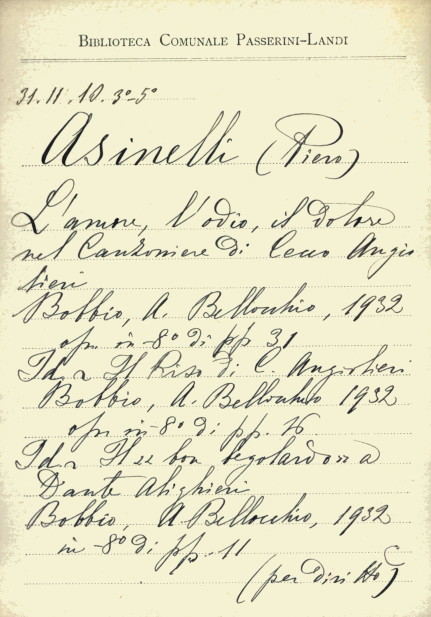 BIBLIOTECA COMUNALE PASSERINI-LANDI
31.11.10.3º-5º
Asinelli (Piero)
L'amore, l'odio, il dolore
nel Canzoniere di Cecco Angio
lieri
Bobbio, A. Bellocchio, 1932
opu in -8º di pp 31
Id. Il Riso di C. Angiolieri
Bobbio, A. Bellocchio 1932
opu in -8º di pp. 16
Id. Il "bon begolardo" a
Dante Alighieri
Bobbio, A Bellocchio, 1932
in -8º di pp. 11
(per diritto)